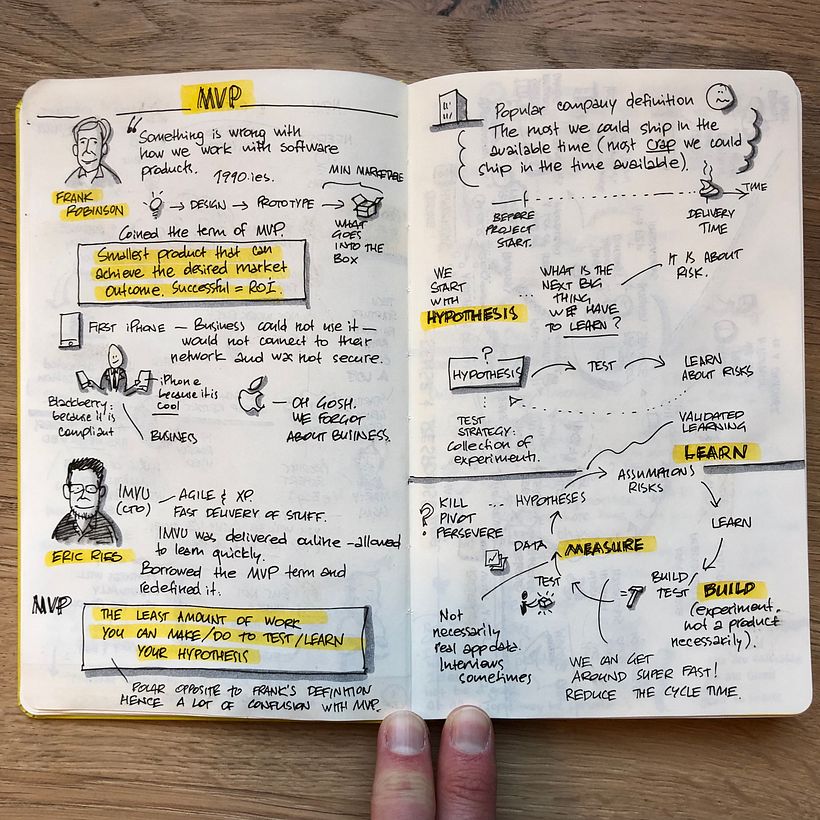 MVP
"Something is wrong with
how we work with software
products.
1990.ies.
MIN MARKETABLE
FRANK
ROBINSON
→ DESIGN → PROTOTYPE →
WHAT
GOES
INTO THE
BOX
Coined the term of MVP.
Smallest product that can
achieve the desired market
outcome. Successful = ROI.
FIRST iPHONE — Business could not use it —
would not connect to their
network and was not secure.
Blackberry:
because it is
compliant
iPhone
because it is
cool
BUSINESS
— OH GOSH.
WE FORGOT
ABOUT BUSINESS.
ERIC RIES
IMVU
(CTO)
AGILE & XP.
FAST DELIVERY OF STUFF.
IMVU was delivered online - allowed
to learn quickly.
Borrowed the MVP term and
redefined it.
MVP
THE LEAST AMOUNT OF WORK
YOU CAN MAKE/DO TO TEST/LEARN
YOUR HYPOTHESIS
POLAR OPPOSITE TO FRANK'S DEFINITION
HENCE A LOT OF CONFUSION WITH MVP.
Popular company definition
The most we could ship in the
available time (most crap we could
ship in the time available).
TIME
BEFORE
PROJECT
START.
DELIVERY
TIME
WE
START
WITH
HYPOTHESIS
WHAT IS THE
NEXT BIG
THING
WE HAVE
TO LEARN?
IT IS ABOUT
RISK.
?
HYPOTHESIS
TEST
LEARN
ABOUT RISKS
TEST
STRATEGY:
collection of
experiment.
VALIDATED
LEARNING
LEARN
? KILL
PIVOT
! PERSEVERE
... HYPOTHESES
ASSUMPTIONS
RISKS
LEARN
DATA
MEASURE
TEST
BUILD/
TEST
BUILD
(experiment.
not a product
necessarily).
Not
necessarily
real app data.
Interviews
sometimes
WE CAN GET
AROUND SUPER FAST!
REDUCE THE CYCLE TIME.